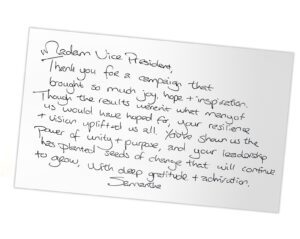 Madam Vice President,
Thank you for a campaign that
brought so much joy, hope + inspiration.
Though the results weren't what many of
us would have hoped for, your resilience
+ vision uplifted us all. You've shown us the
power of unity + purpose, and your leadership
has planted seeds of change that will continue
to grow. With deep gratitude + admiration,
Samantha